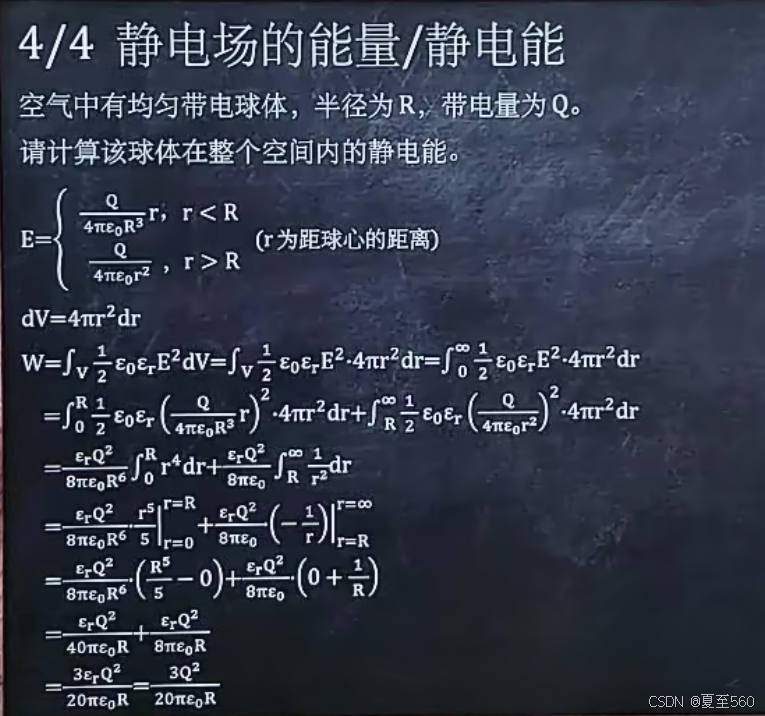 4/4 静电场的能量/静电能
空气中有均匀带电球体，半径为R，带电量为Q。
请计算该球体在整个空间内的静电能。
E={ Q/(4πε₀R³) r，r < R
Q/(4πε₀r²) ，r > R (r为距球心的距离)
dV=4πr²dr
W=∫_V 1/2 ε₀εᵣE²dV=∫_V 1/2 ε₀εᵣE²·4πr²dr=∫₀^∞ 1/2 ε₀εᵣE²·4πr²dr
=∫₀^R 1/2 ε₀εᵣ(Q/(4πε₀R³) r)²·4πr²dr+∫_R^∞ 1/2 ε₀εᵣ(Q/(4πε₀r²))²·4πr²dr
=εᵣQ²/(8πε₀R⁶) ∫₀^R r⁴dr+εᵣQ²/(8πε₀) ∫_R^∞ 1/r² dr
=εᵣQ²/(8πε₀R⁶)·r⁵/5|_{r=0}^{r=R}+εᵣQ²/(8πε₀)(−1/r)|_{r=R}^{r=∞}
=εᵣQ²/(8πε₀R⁶)·(R⁵/5−0)+εᵣQ²/(8πε₀)·(0+1/R)
=εᵣQ²/(40πε₀R)+εᵣQ²/(8πε₀R)
=3εᵣQ²/(20πε₀R)=3Q²/(20πε₀R)
CSDN @夏至560